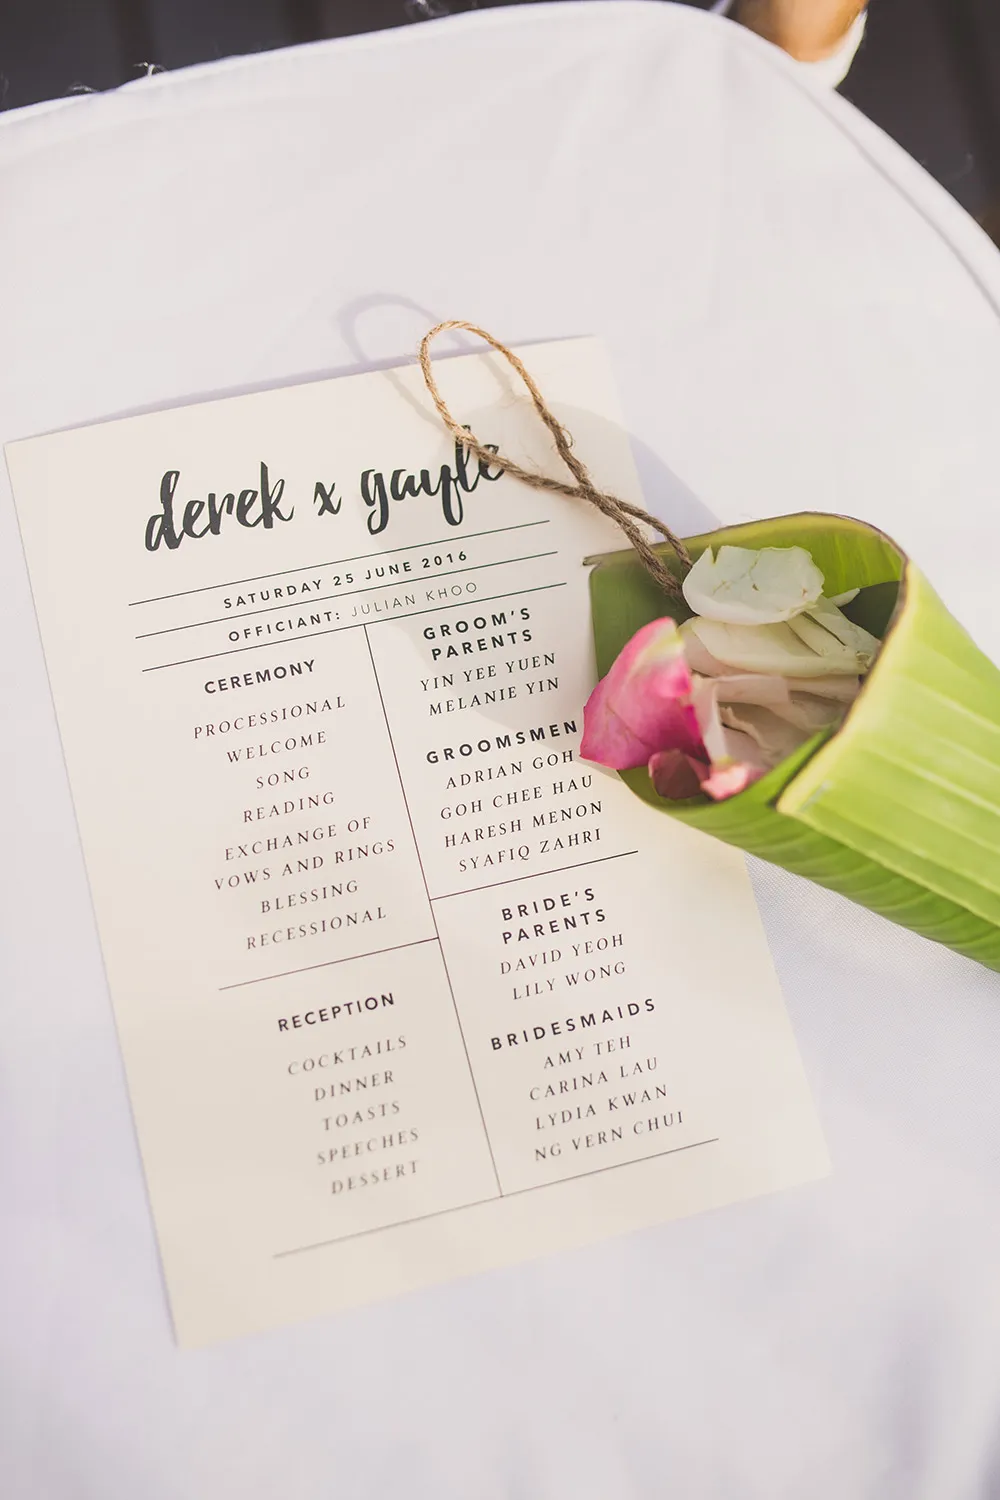 derek x gayle
SATURDAY 25 JUNE 2016
OFFICIANT: JULIAN KHOO
CEREMONY
PROCESSIONAL
WELCOME
SONG
READING
EXCHANGE OF
VOWS AND RINGS
BLESSING
RECESSIONAL
RECEPTION
COCKTAILS
DINNER
TOASTS
SPEECHES
DESSERT
GROOM'S
PARENTS
YIN YEE YUEN
MELANIE YIN
GROOMSMEN
ADRIAN GOH
GOH CHEE HAU
HARESH MENON
SYAFIQ ZAHRI
BRIDE'S
PARENTS
DAVID YEOH
LILY WONG
BRIDESMAIDS
AMY TEH
CARINA LAU
LYDIA KWAN
NG VERN CHUI